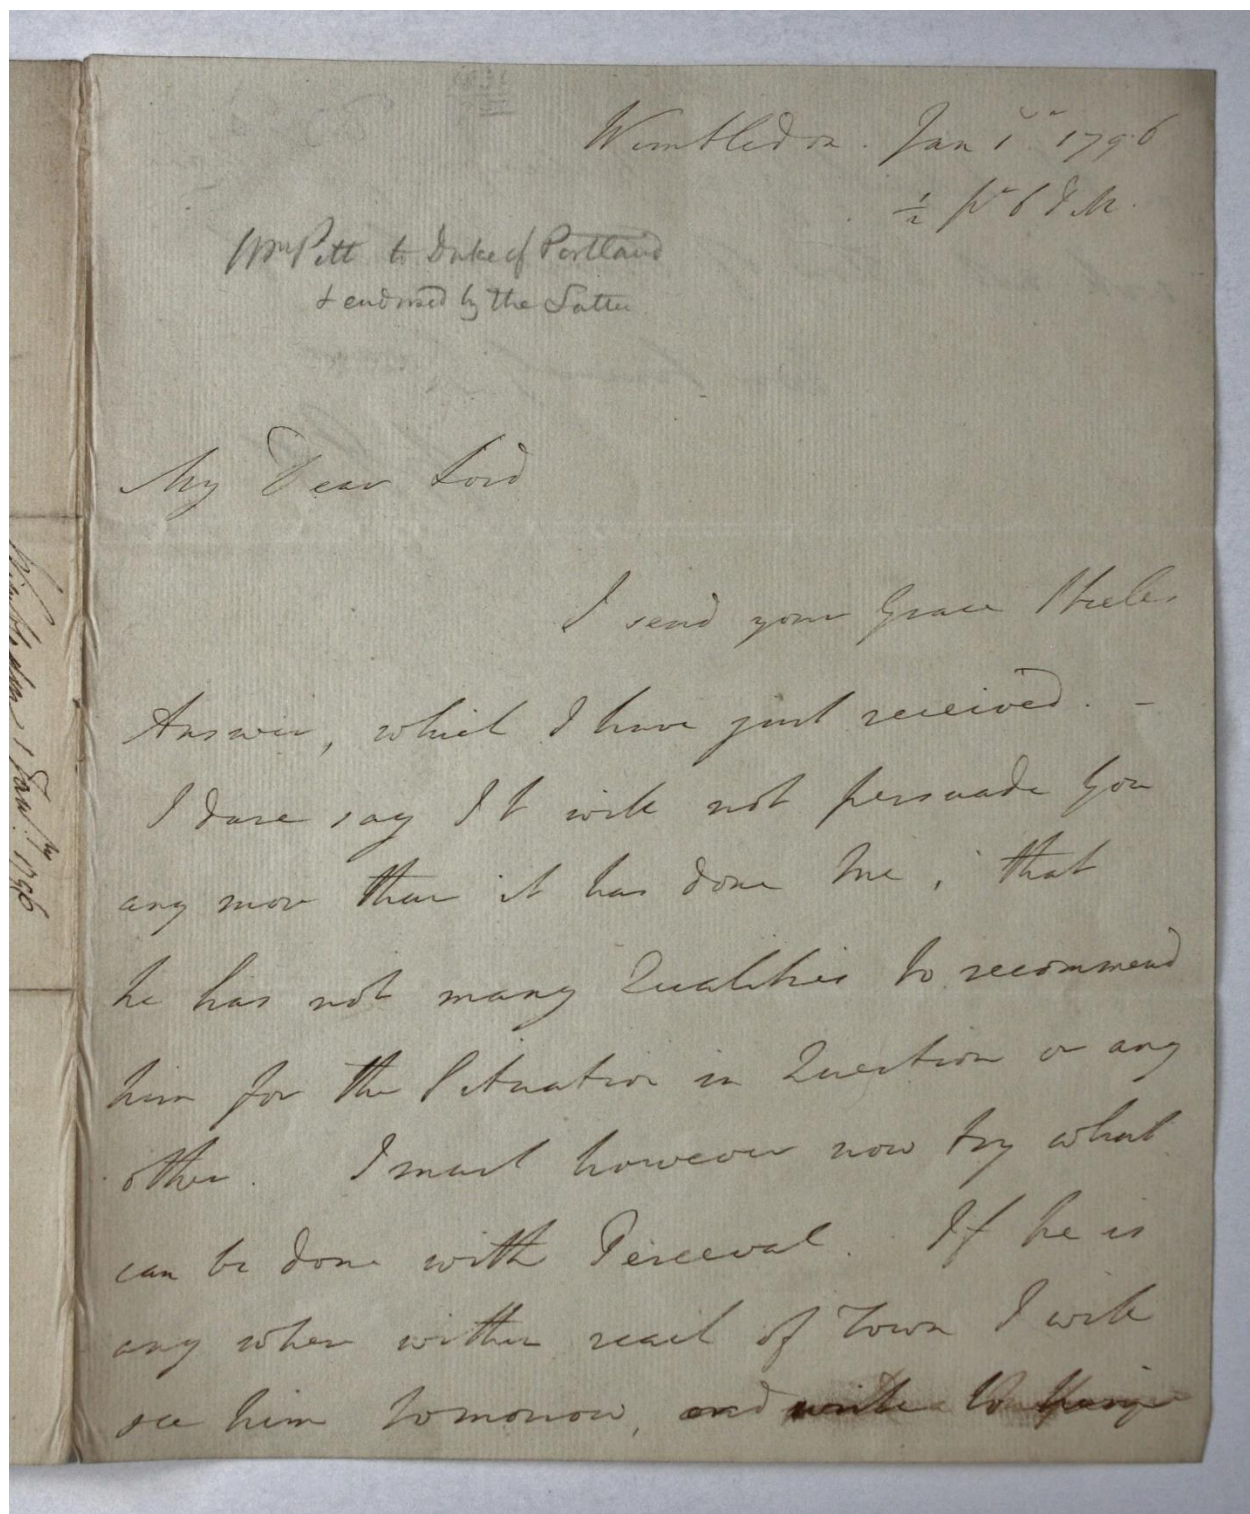 Wimbledon. Jan 1st 1796
½ pt 6 P.M.
Wm Pitt to Duke of Portland
& endorsed by the Latter
My Dear Lord
I send your Grace Steele's
Answer, which I have just received. –
I dare say It will not persuade You
any more than it has done Me, that
he has not many Qualities to recommend
him for the Situation in Question or any
other. I must however now try what
can be done with Perceval. If he is
any where within reach of Town I will
see him tomorrow, and write to
Wimbledon 1 Janry 1796